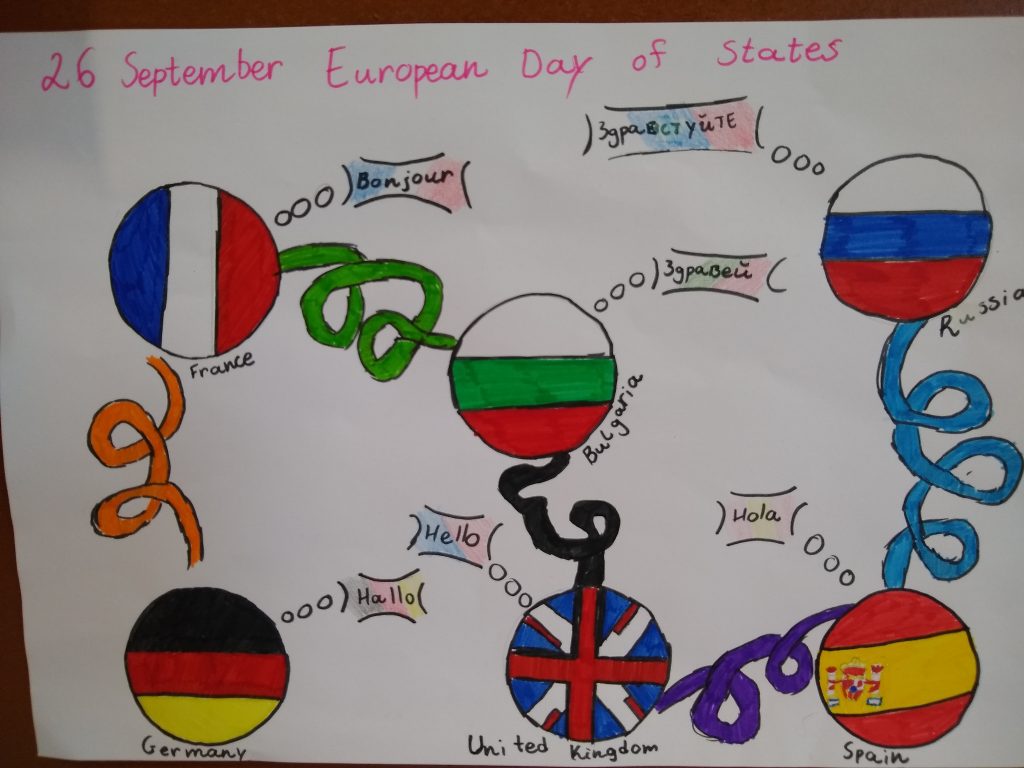 26 September European Day of States
Здравствуйте
Bonjour
Здравей
Russia
France
Bulgaria
Hello
Hola
Hallo
Germany
United Kingdom
Spain